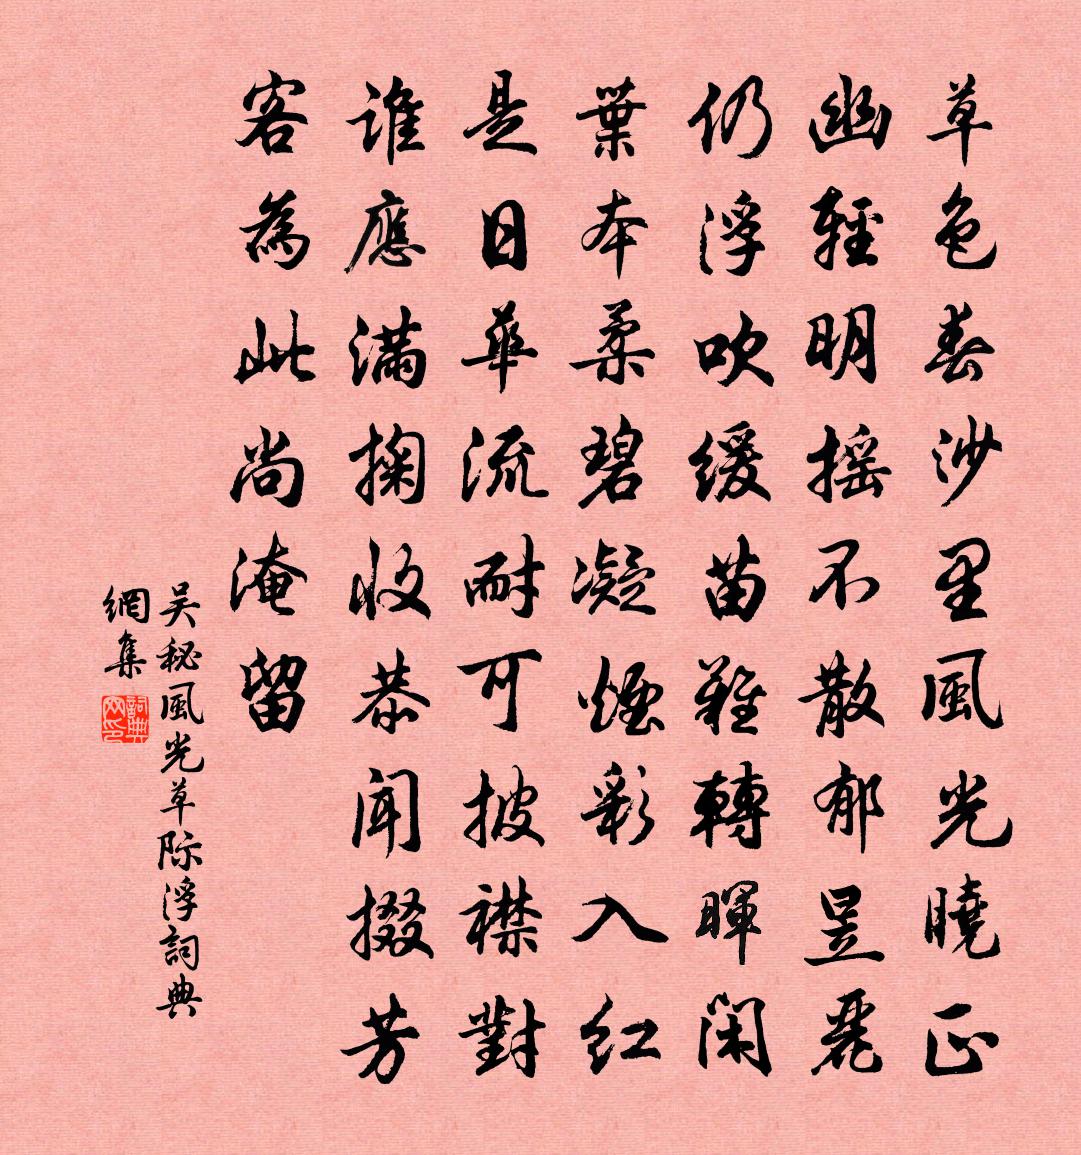 草色春沙里風光曉正
幽輕明摇不散郁昱麗
仍浮吹緩苗難轉暉閑
葉本柔碧凝煙彩入紅
是日華流耐可披襟對
誰應滿掬收恭聞掇芳
客為此尚淹留
吴秘風光草际浮詞典
網集
詞典
网印